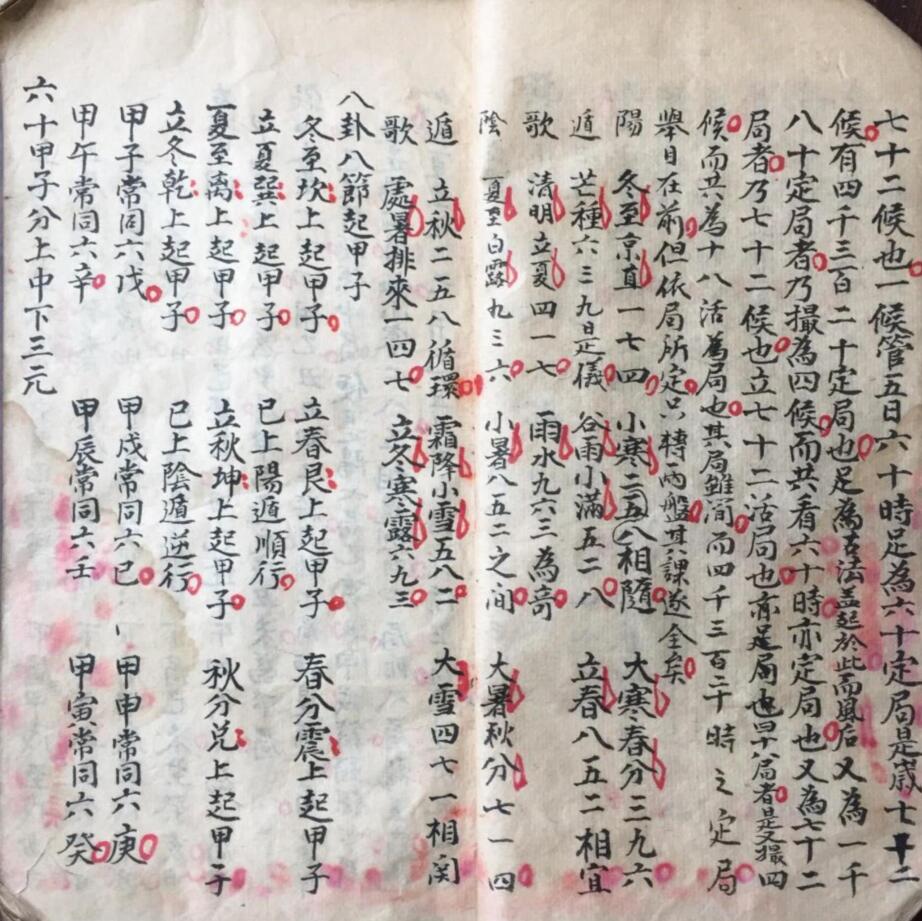 七十二候也一候管五日六十時足為六十定局是歲七十二
候有四千三百二十定局也足為古法蓋起於此而風后又為一千
八十定局者乃撮為四候而共看六十時亦定局也又為七十二
局者乃七十二候也立七十二活局也亦足局也十八局者是又撮四
候而共為十八活為局也其局雖简而四千三百二十時之定局
舉目在前但依局所定只轉兩盤其課遂全矣
陽 冬至京直一七四 小寒二五八相隨 大寒春分三九六
遁 芒種六三九日是儀 谷雨小滿五二八 立春八五二相宜
歌 清明立夏四一七 雨水九六三為竒
陰 夏至白露九三六 小暑八五二之间 大暑秋分七一四
遁 立秋二五八循環 霜降小雪五八二 大雪四七一相関
歌 處暑排來一四七 立冬寒露六九三
八卦八節起甲子
冬至坎上起甲子 立春艮上起甲子 春分震上起甲子
立夏巽上起甲子 已上陽遁順行
夏至離上起甲子 立秋坤上起甲子 秋分兑上起甲子
立冬乾上起甲子 已上陰遁逆行
甲子常同六戊 甲戌常同六己 甲申常同六庚
甲午常同六辛 甲辰常同六壬 甲寅常同六癸
六十甲子分上中下三元